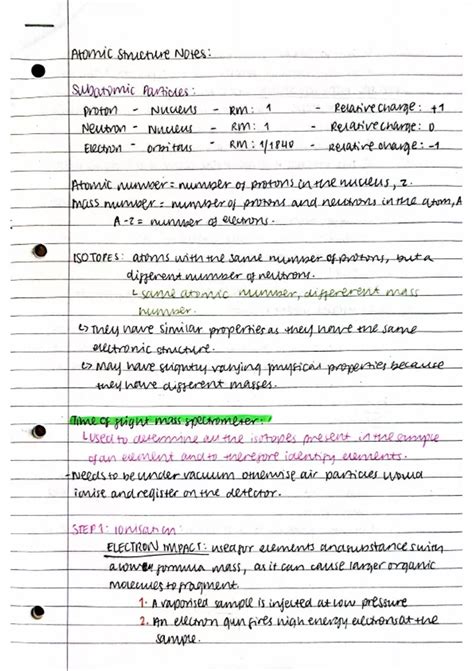 Atomic Structure Notes:
Subatomic Particles:
Proton - Nucleus - RM: 1 - Relative Charge: +1
Neutron - Nucleus - RM: 1 - Relative Charge: 0
Electron - orbitals - RM: 1/1840 - Relative charge: -1
Atomic number = number of protons in the nucleus, z.
Mass number = number of protons and neutrons in the atom, A
A-z = number of electrons.
ISOTOPES: atoms with the same number of protons, but a
different number of neutrons.
↳ same atomic number, different mass
number.
↳ They have similar properties as they have the same
electronic structure.
↳ May have slightly varying physical properties because
they have different masses.
Time of flight mass spectrometer:
↳ used to determine all the isotopes present in the sample
of an element and to therefore identify elements.
- Needs to be under vacuum otherwise air particles would
ionise and register on the detector.
STEP 1: Ionisation:
ELECTRON IMPACT: used for elements and substances with
a low formula mass, as it can cause larger organic
molecules to fragment.
1. A vaporised sample is injected at low pressure
2. An electron gun fires high energy electrons at the
sample.